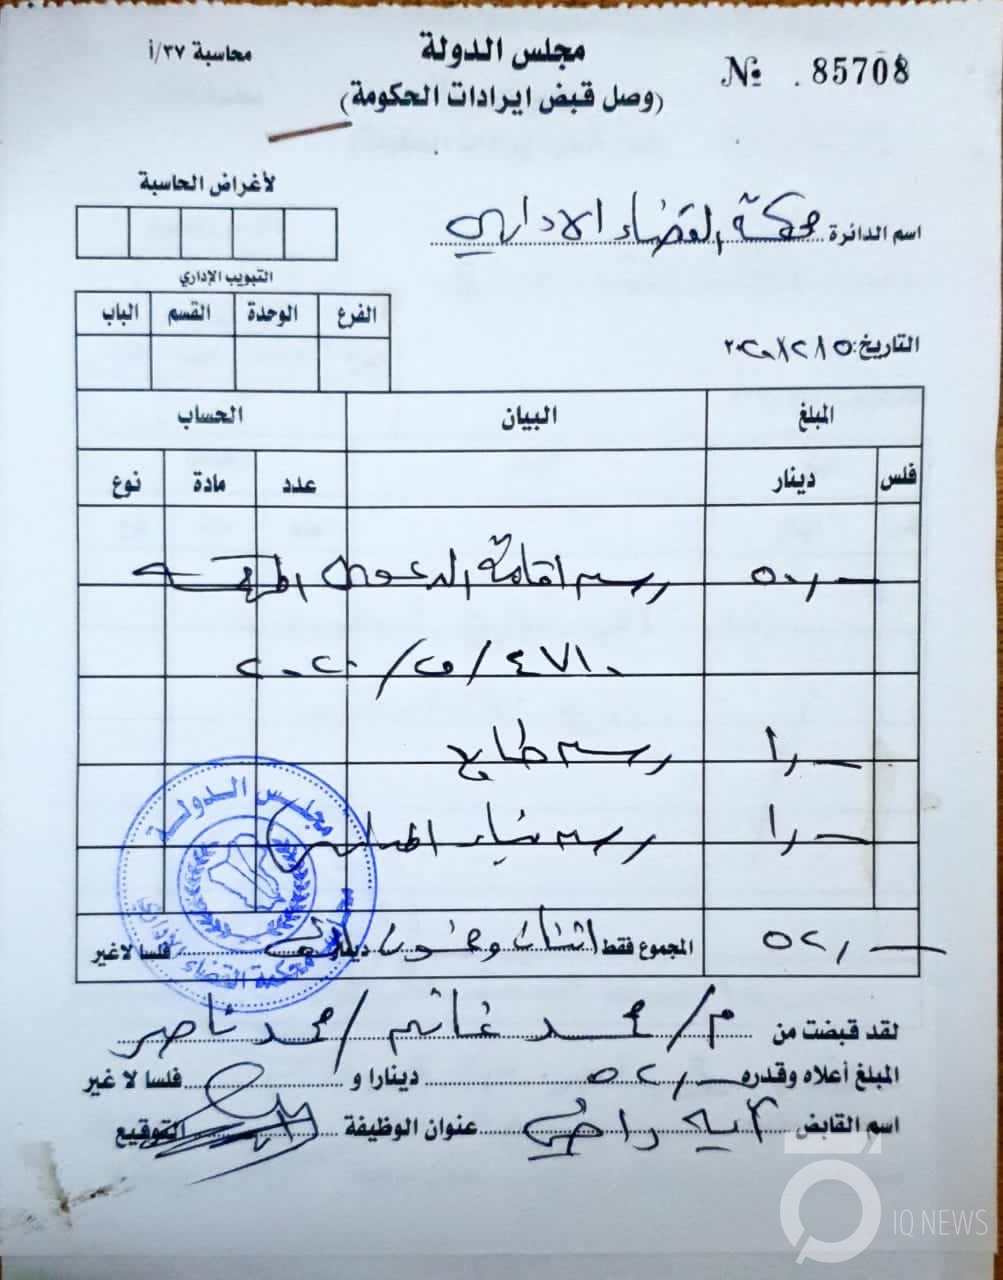 محاسبة ٣٧/أ
مجلس الدولة
(وصل قبض ايرادات الحكومة)
№ 85708
لأغراض الحاسبة
اسم الدائرة محكمة القضاء الاداري
التبويب الإداري
الفرع الوحدة القسم الباب
التاريخ:
المبلغ البيان الحساب
فلس دينار عدد مادة نوع
٥٠,— رسم اقامة الدعوى المرقمة
٤٧١٠/ق/٢٠٢٠
١,— رسم طابع
١,— رسم بناء المحاكم
٥٢,— المجموع فقط اثنان وخمسون الف دينار فلسا لاغير
مجلس الدولة
محكمة القضاء الإداري
لقد قبضت من م/محمد غانم/محمد ناصر
المبلغ أعلاه وقدره ٥٢,— دينارا و فلسا لا غير
اسم القابض آية راضي عنوان الوظيفة التوقيع
IQ NEWS